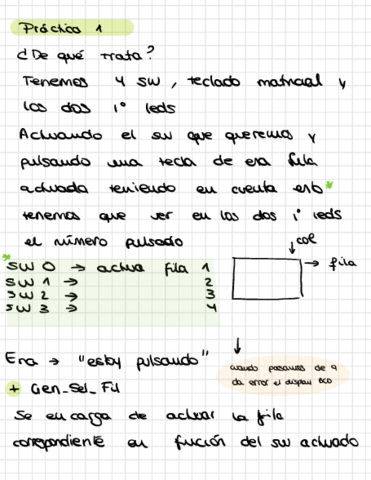 Práctica 1
¿De qué trata?
Tenemos 4 SW, teclado matricial y
los dos 1º leds
Activando el sw que queremos y
pulsando una tecla de esa fila
activada teniendo en cuenta esto *
tenemos que ver en los dos 1º leds
el número pulsado
* SW 0 → activa fila 1
SW 1 → 2
SW 2 → 3
SW 3 → 4
↓ col
→ fila
Ena → "estoy pulsando"
↓
cuando pasamos de 9
da error el display BCD
+ Gen_Sel_Fil
Se encarga de activar la fila
correspondiente en función del sw activado